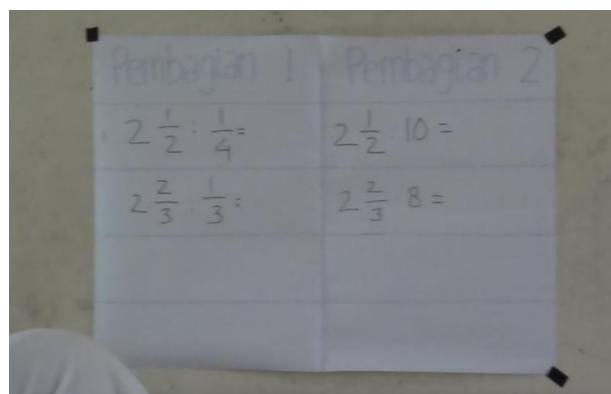 Pembagian 1 Pembagian 2
2 1/2 : 1/4 = 2 1/2 : 10 =
2 2/3 : 1/3 = 2 2/3 : 8 =